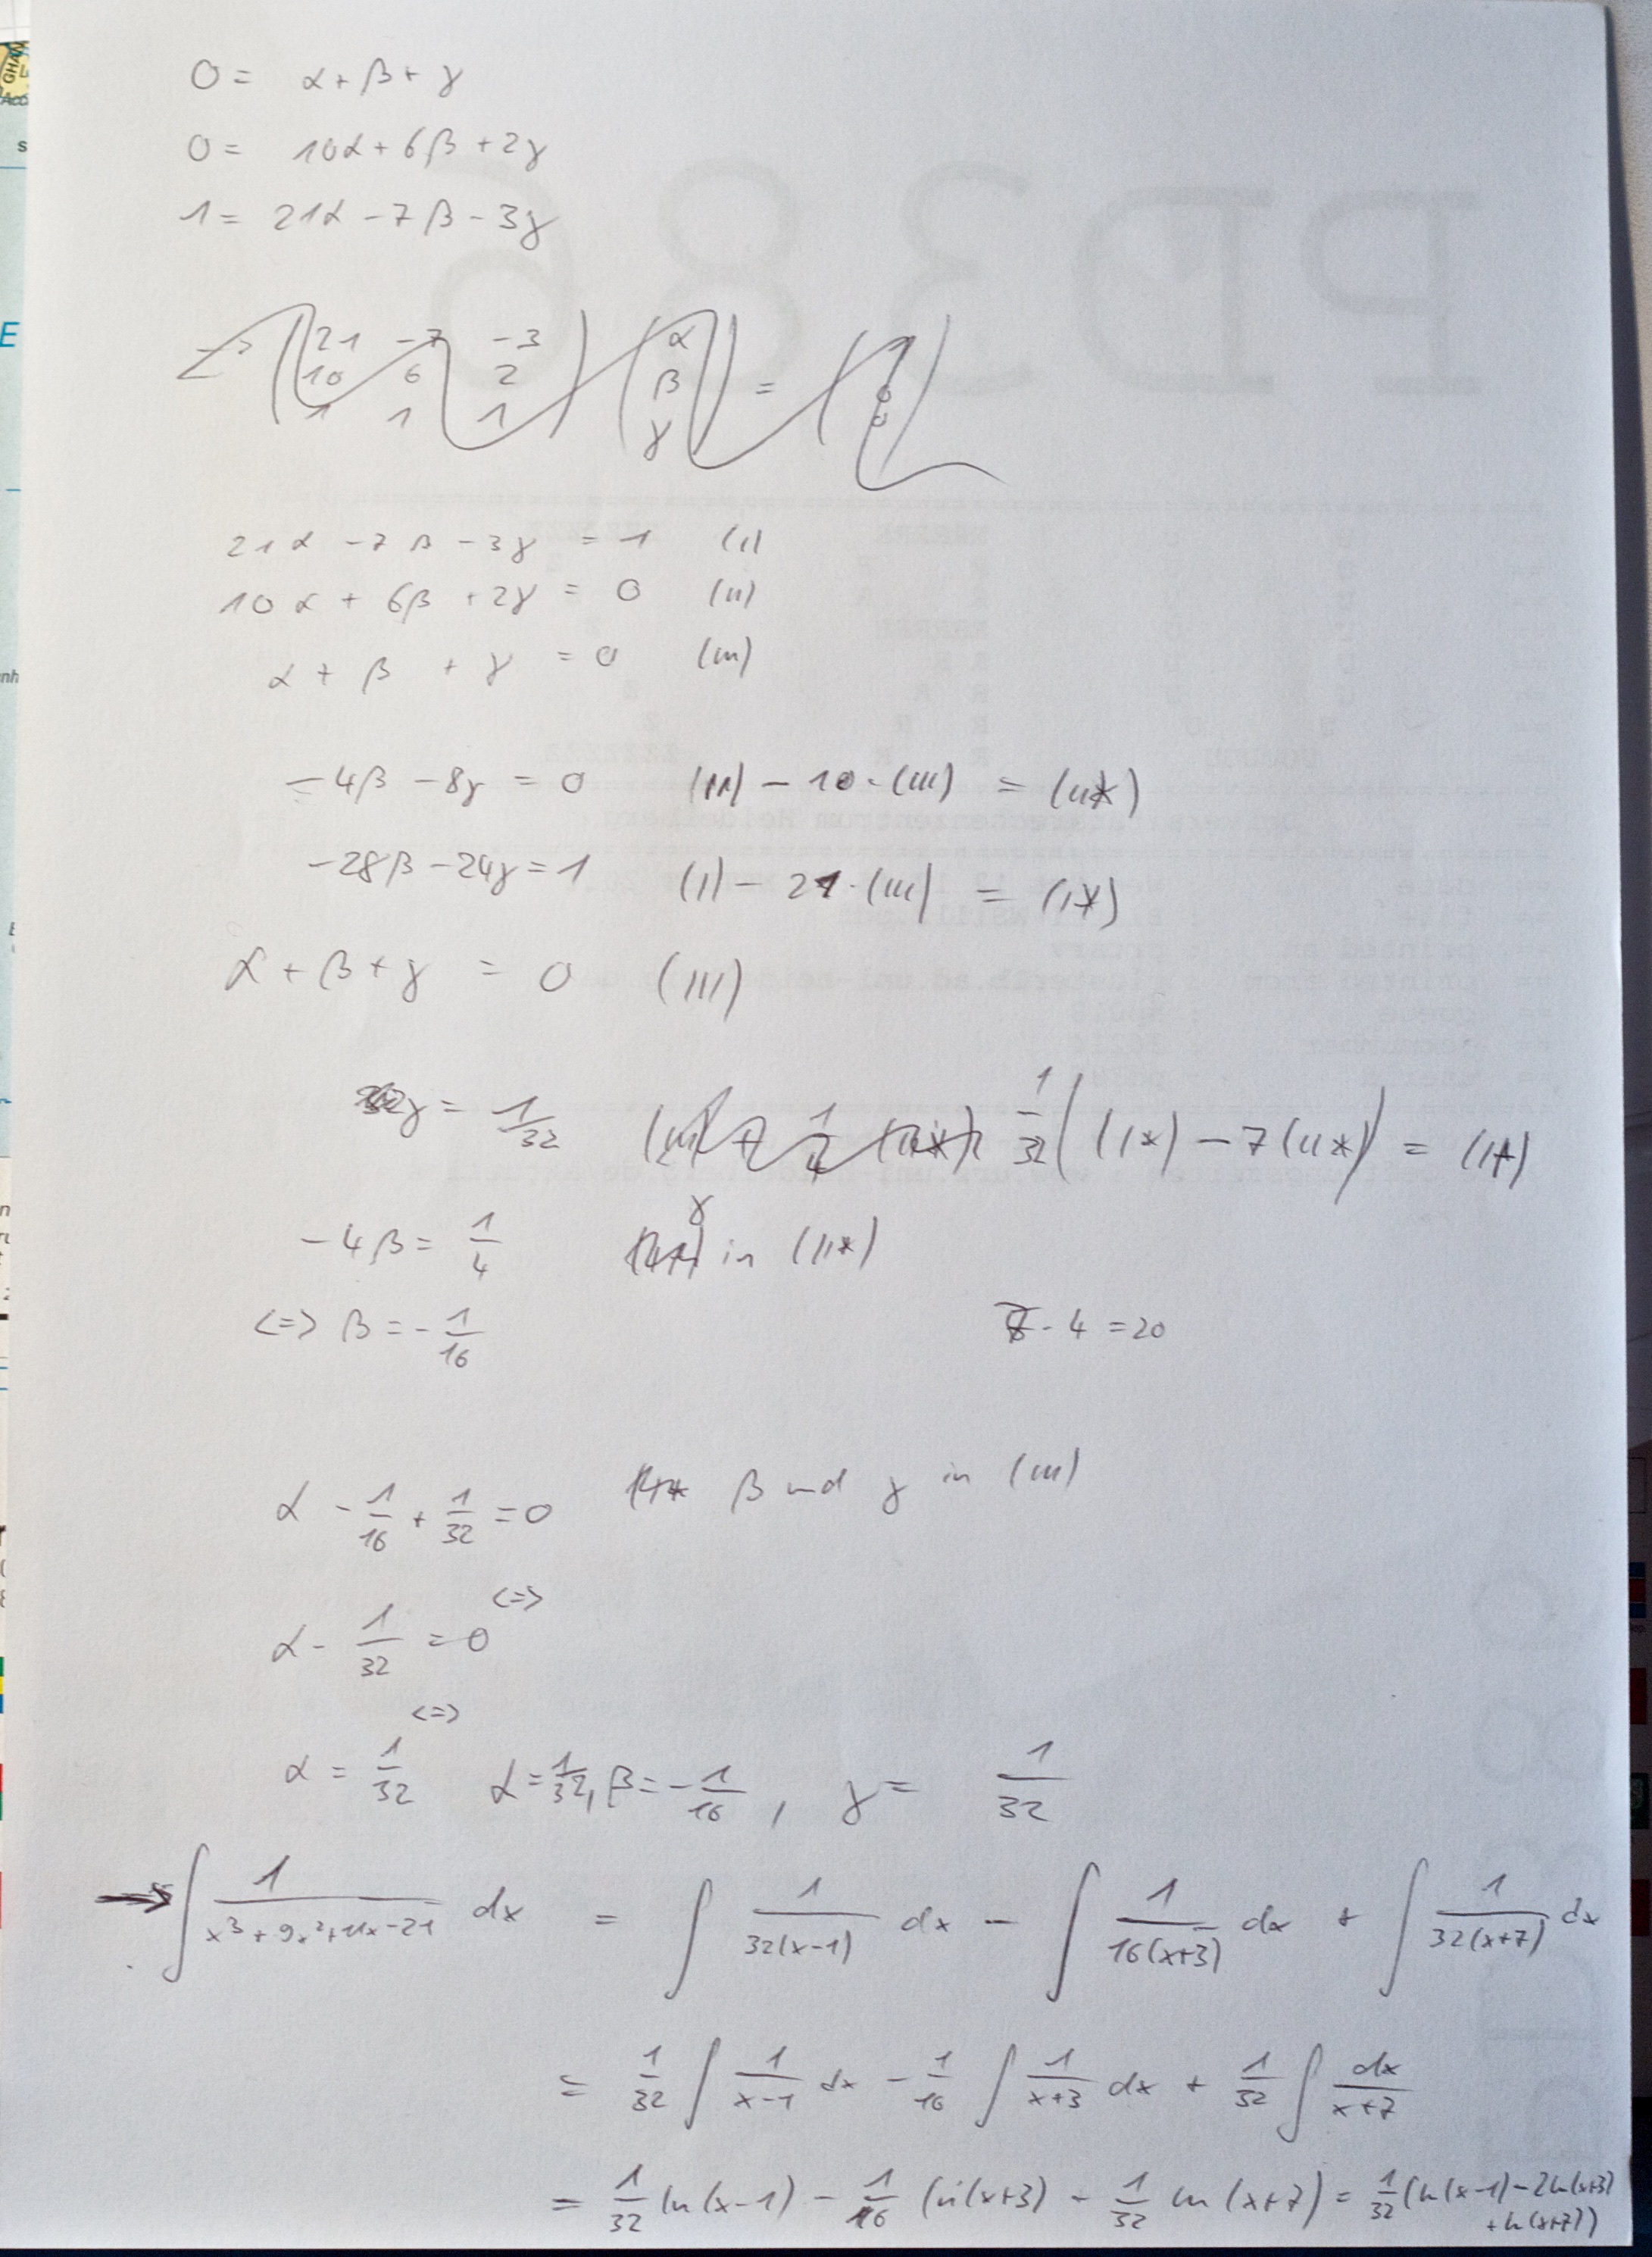 0 = α + β + γ
0 = 10α + 6β + 2γ
1 = 21α - 7β - 3γ
21 -7 -3 α 1
10 6 2 β = 0
1 1 1 γ 0
21α - 7β - 3γ = 1 (I)
10α + 6β + 2γ = 0 (II)
α + β + γ = 0 (III)
-4β - 8γ = 0 (II) - 10·(III) = (II*)
-28β - 24γ = 1 (I) - 21·(III) = (I*)
α + β + γ = 0 (III)
γ = 1/32 1/32((I*) - 7(II*)) = (I*)
-4β = 1/4 γ in (II*)
<=> β = -1/16
7·4 = 20
α - 1/16 + 1/32 = 0 β und γ in (III)
<=>
α - 1/32 = 0
<=>
α = 1/32 α = 1/32, β = -1/16, γ = 1/32
→ ∫ 1/(x³+9x²+11x-21) dx = ∫ 1/(32(x-1)) dx - ∫ 1/(16(x+3)) dx + ∫ 1/(32(x+7)) dx
= 1/32 ∫ 1/(x-1) dx - 1/16 ∫ 1/(x+3) dx + 1/32 ∫ dx/(x+7)
= 1/32 ln(x-1) - 1/16 ln(x+3) - 1/32 ln(x+7) = 1/32 (ln(x-1) - 2ln(x+3)
+ ln(x+7))